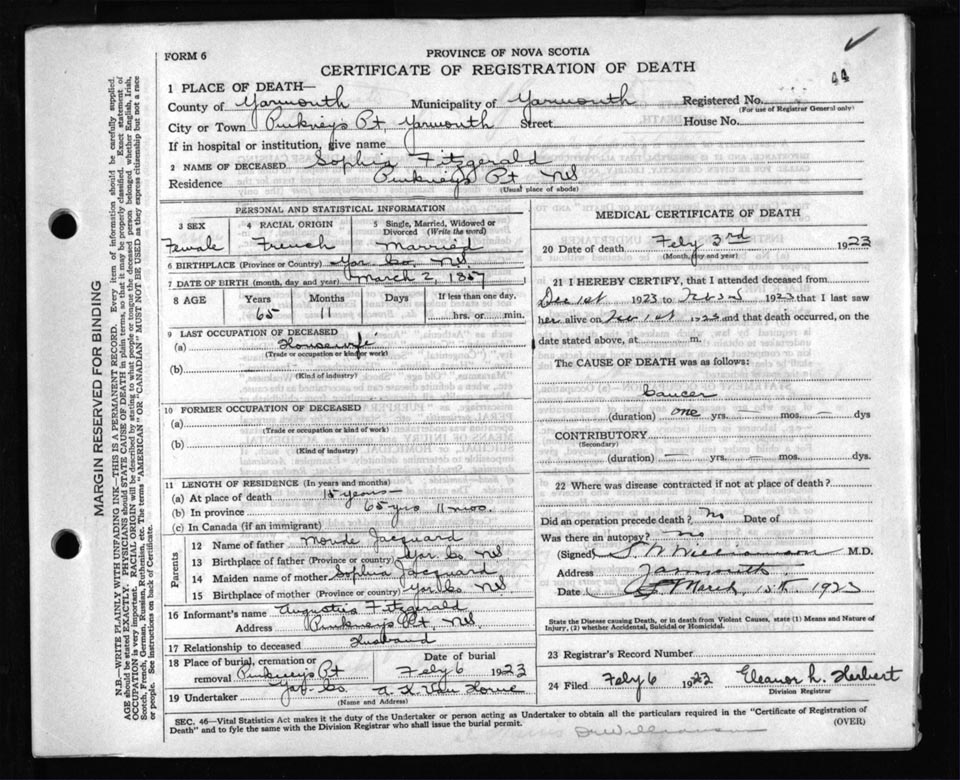 FORM 6
PROVINCE OF NOVA SCOTIA
CERTIFICATE OF REGISTRATION OF DEATH
1 PLACE OF DEATH—
County of Yarmouth Municipality of Yarmouth Registered No.
(For use of Registrar General only)
City or Town Pinkneys Pt, Yarmouth Street House No.
If in hospital or institution, give name
2 NAME OF DECEASED Sophia Fitzgerald
Residence Pinkneys Pt NS
(Usual place of abode)
PERSONAL AND STATISTICAL INFORMATION
3 SEX 4 RACIAL ORIGIN 5 Single, Married, Widowed or Divorced (Write the word)
Female French Married
6 BIRTHPLACE (Province or Country) Yar. Co. NS
7 DATE OF BIRTH (month, day and year) March 2, 1857
8 AGE Years Months Days If less than one day.
65 11 hrs. or min.
9 LAST OCCUPATION OF DECEASED
(a) Housewife
(Trade or occupation or kind or work)
(b)
(Kind of industry)
10 FORMER OCCUPATION OF DECEASED
(a)
(Trade or occupation or kind of work)
(b)
(Kind of industry)
11 LENGTH OF RESIDENCE (In years and months)
(a) At place of death 15 years
(b) In province 65 yrs 11 mos.
(c) In Canada (if an immigrant)
Parents
12 Name of father Jacquard
13 Birthplace of father (Province or country) Yar. Co NS
14 Maiden name of mother Sophia Jacquard
15 Birthplace of mother (Province or country) Yar. Co NS
16 Informant's name Fitzgerald
Address Pinkneys Pt. NS
17 Relationship to deceased Husband
18 Place of burial, cremation or removal Pinkneys Pt Yar. Co.
Date of burial Feby 6 1923
19 Undertaker A. K. Van Horne
(Name and Address)
MEDICAL CERTIFICATE OF DEATH
20 Date of death Feby 3rd 1923
(Month, day and year)
21 I HEREBY CERTIFY, that I attended deceased from
Dec 1st 1923 to 1923 that I last saw
her alive on 1st 1923 and that death occurred, on the
date stated above, at m.
The CAUSE OF DEATH was as follows:
Cancer
(duration) one yrs. — mos. — dys
CONTRIBUTORY
(Secondary)
(duration) — yrs. — mos. dys.
22 Where was disease contracted if not at place of death?
Did an operation precede death? No Date of
Was there an autopsy? No
(Signed) Williamson M.D.
Address Yarmouth
Date March 1923
State the Disease causing Death, or in death from Violent Causes, state (1) Means and Nature of
Injury, (2) whether Accidental, Suicidal or Homicidal.
23 Registrar's Record Number
24 Filed Feby 6 1923 Eleanor h. Herbert
Division Registrar
SEC. 46—Vital Statistics Act makes it the duty of the Undertaker or person acting as Undertaker to obtain all the particulars required in the "Certificate of Registration of
Death" and to fyle the same with the Division Registrar who shall issue the burial permit.
(OVER)
Dr Williamson
MARGIN RESERVED FOR BINDING
N.B.—WRITE PLAINLY WITH UNFADING INK—THIS IS A PERMANENT RECORD. Every item of information should be carefully supplied.
AGE should be stated EXACTLY. PHYSICIANS should STATE CAUSE OF DEATH in plain terms, so that it may be properly classified. Exact statement of
OCCUPATION is very important. RACIAL ORIGIN will be described by stating to what people or tongue the deceased person belonged whether English, Irish,
Scotch, French, German, Russian, Ruthenian, etc. The terms "AMERICAN" OR "CANADIAN" MUST NOT BE USED as they express citizenship but not a race
or people. See instructions on back of Certificate.